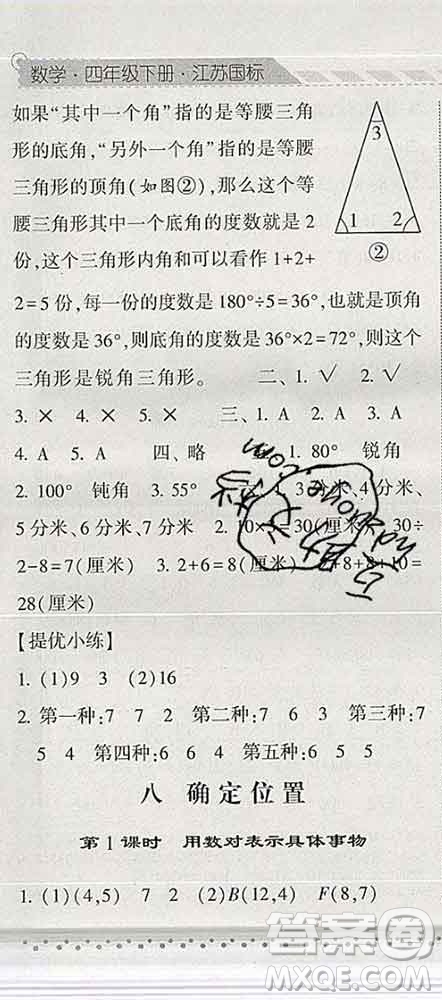 数学·四年级下册·江苏国标
如果“其中一个角”指的是等腰三角
形的底角,“另外一个角”指的是等腰
三角形的顶角(如图②),那么这个等
腰三角形其中一个底角的度数就是2
份,这个三角形内角和可以看作1+2+
3
1 2
②
2=5份,每一份的度数是180°÷5=36°,也就是顶角
的度数是36°,则底角的度数是36°×2=72°,故这个
三角形是锐角三角形。 二、1.√ 2.√
3.× 4.× 5.× 三、1.A 2.A 3.A
4.A 5.A 四、略 1.80° 锐角
2.100° 钝角 3.55° 1.3分米、4分米、
5分米、6分米、7分米 2.10×3=30(厘米) 30÷
2-8=7(厘米) 3.2+6=8(厘米) +8+8+10=
28(厘米)
【提优小练】
1.(1)9 3 (2)16
2.第一种:7 7 2 第二种:7 6 3 第三种:7
5 4 第四种:6 6 4 第五种:6 5 5
八 确定位置
第1课时 用数对表示具体事物
1.(1)(4,5) 7 2 (2)B(12,4) F(8,7)
答案圈
MXQE.COM